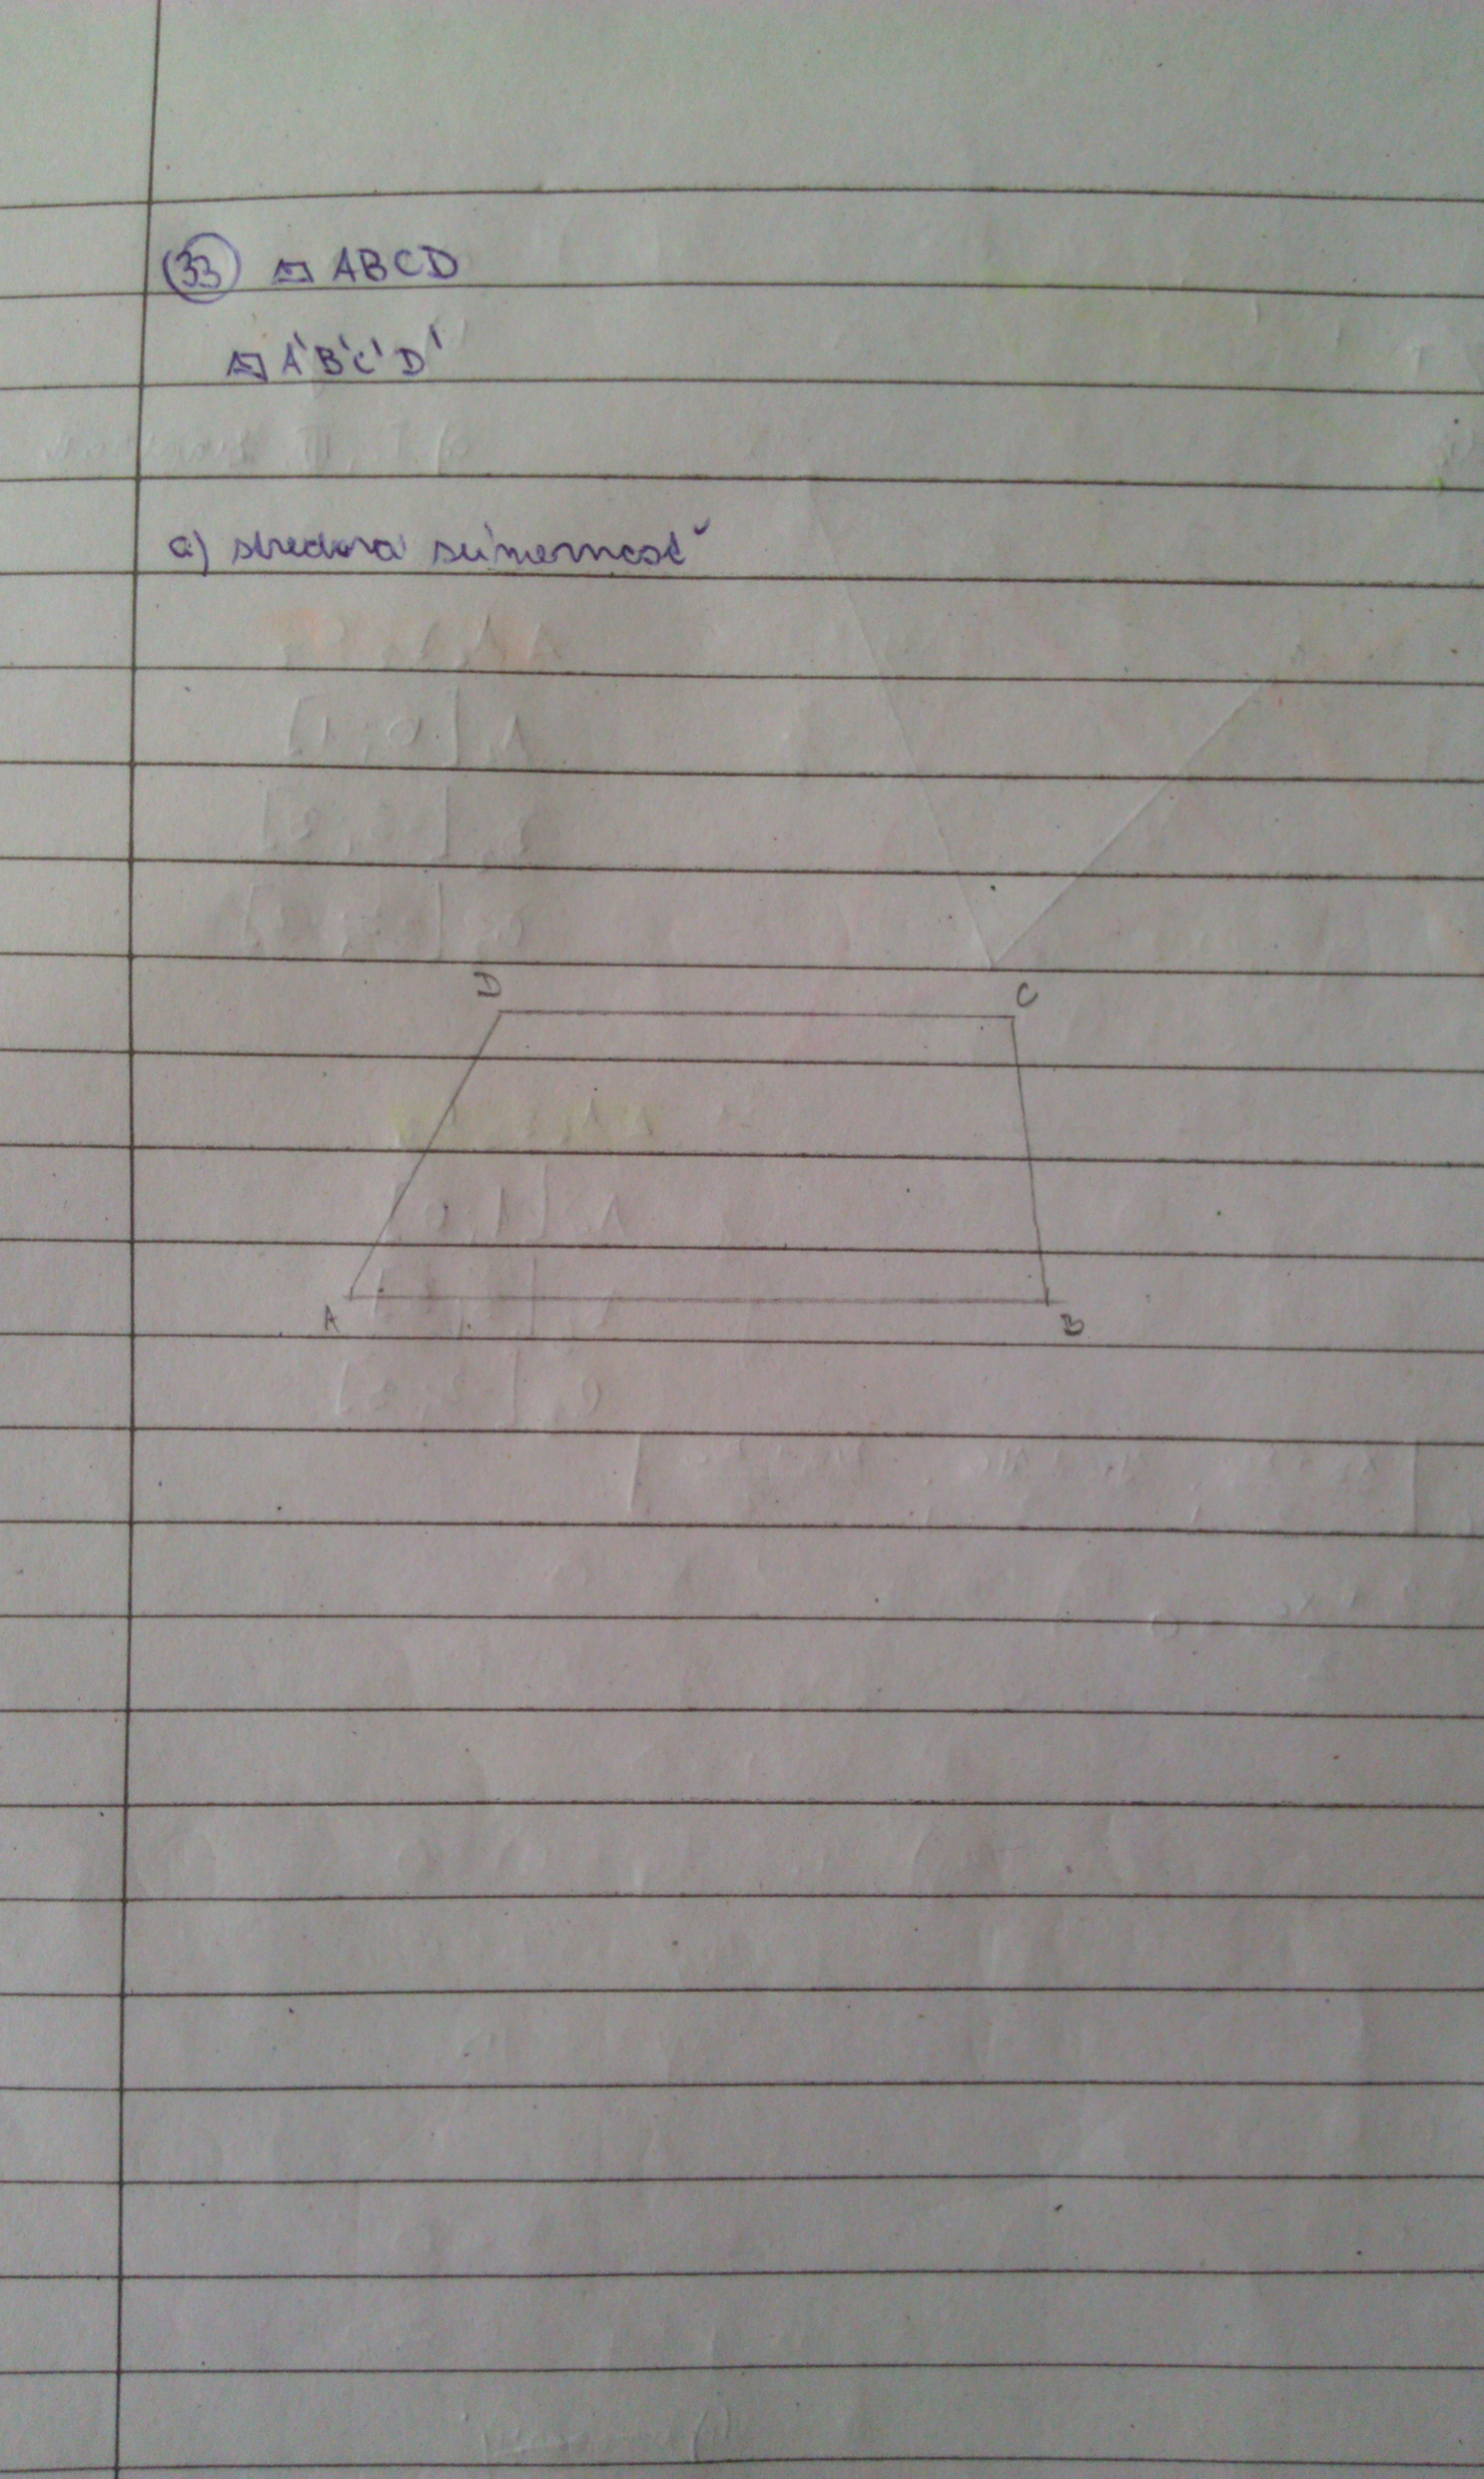 33 ▱ ABCD
▱ A'B'C'D'
a) stredová súmernosť
D C
A B